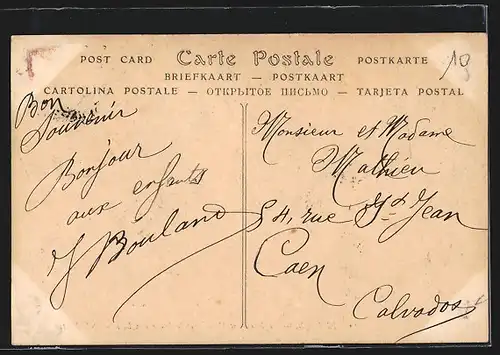 POST CARD Carte Postale POSTKARTE
BRIEFKAART — POSTKAART
CARTOLINA POSTALE — ОТКРЫТОЕ ПИСЬМО — TARJETA POSTAL
19
Bon
Souvenir
Bonjour
aux enfants
J Bouland
Monsieur et Madame
Mathieu
54, rue St Jean
Caen
Calvados